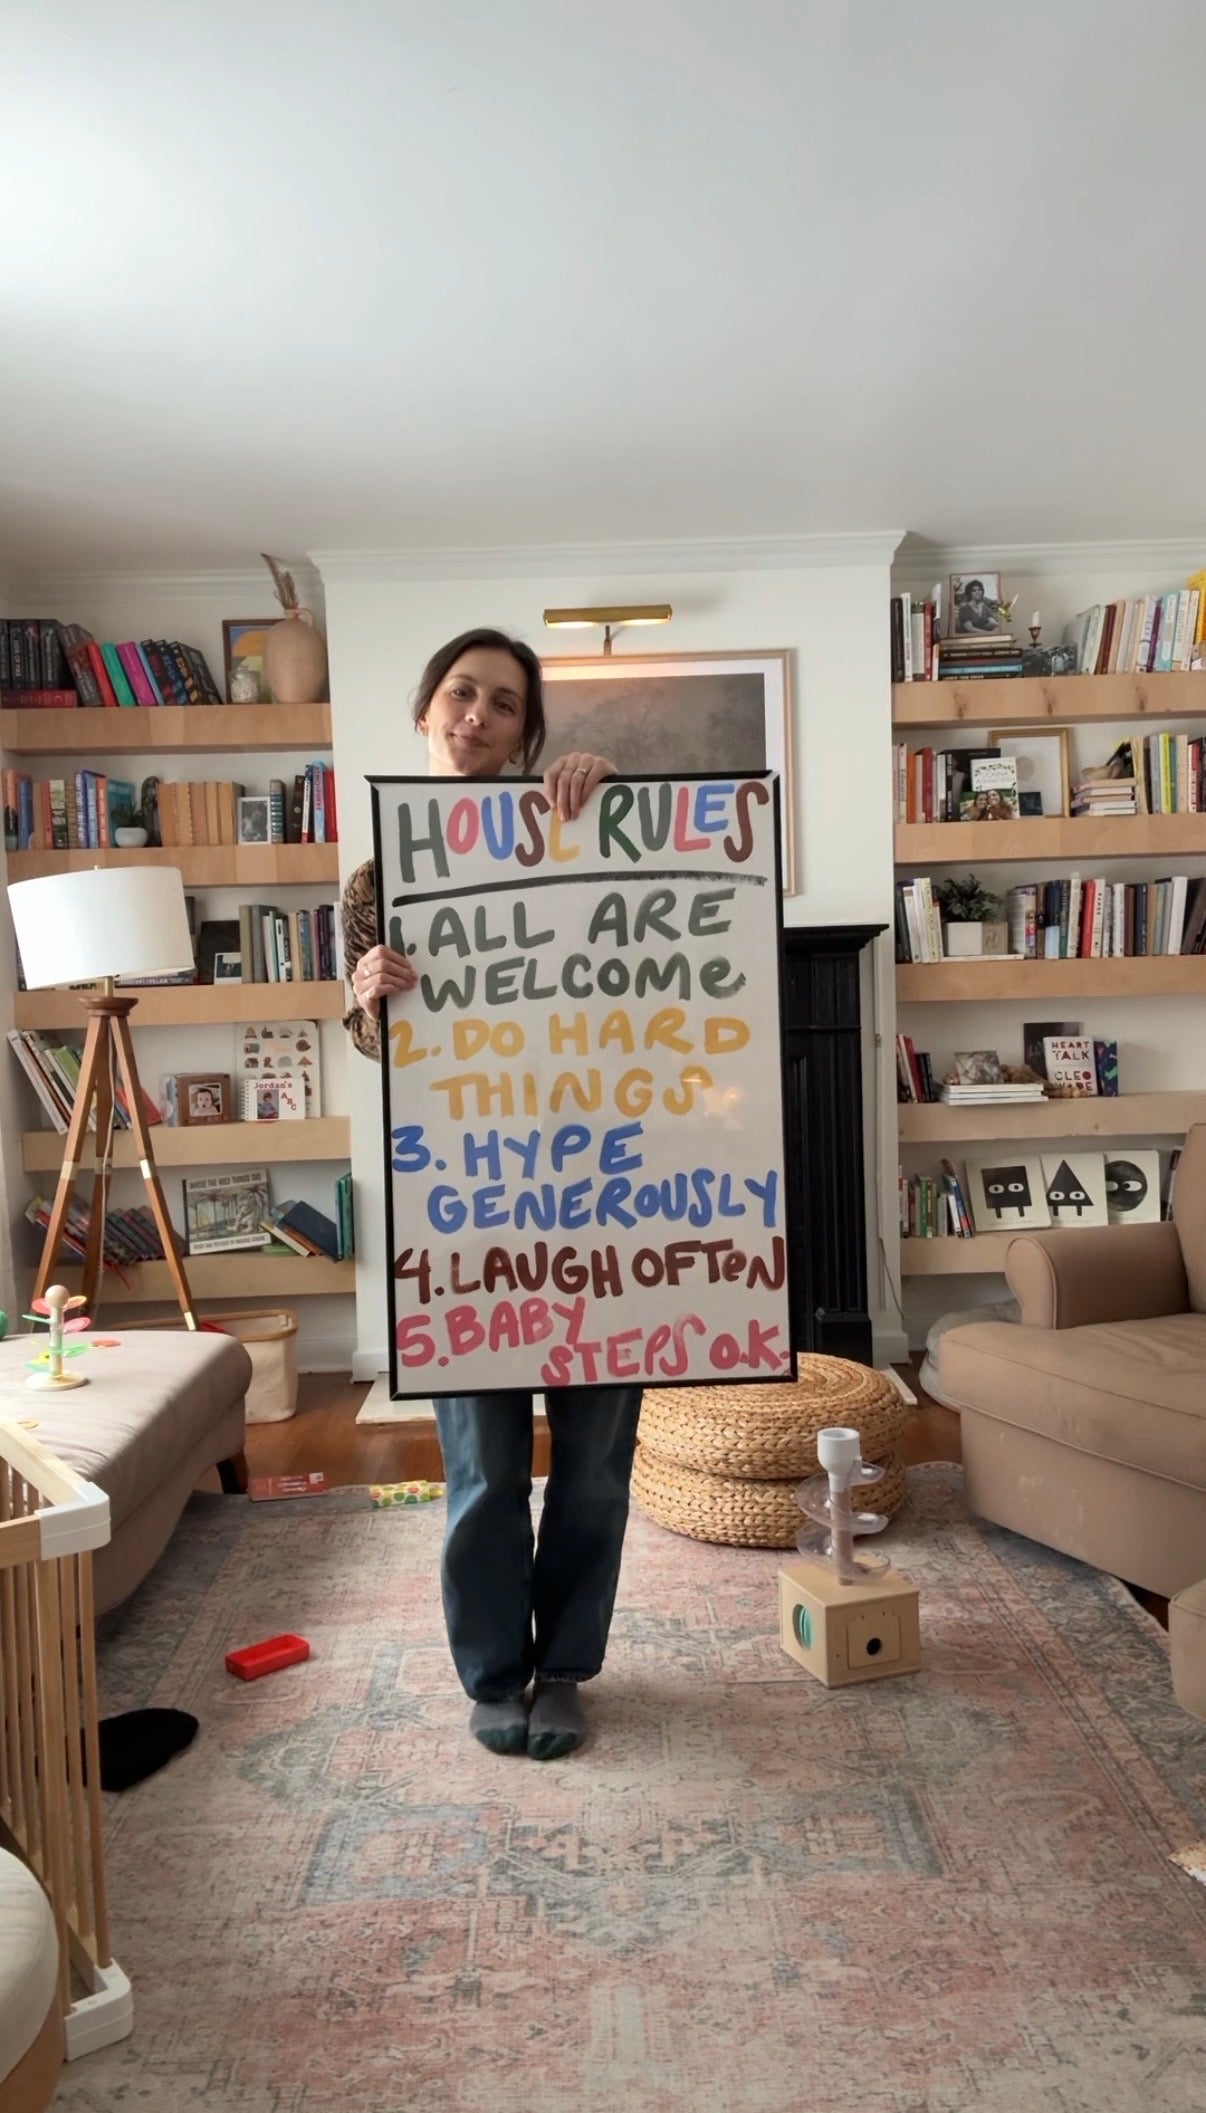 HOUSE RULES
1. ALL ARE
WELCOMe
2. DO HARD
THINGS
3. HYPE
GENEROUSLY
4. LAUGH OFTeN
5. BABY
STEPS O.K.
Jordan's
ABC
WHERE THE WILD THINGS ARE
HEART
TALK
CLEO
WADE